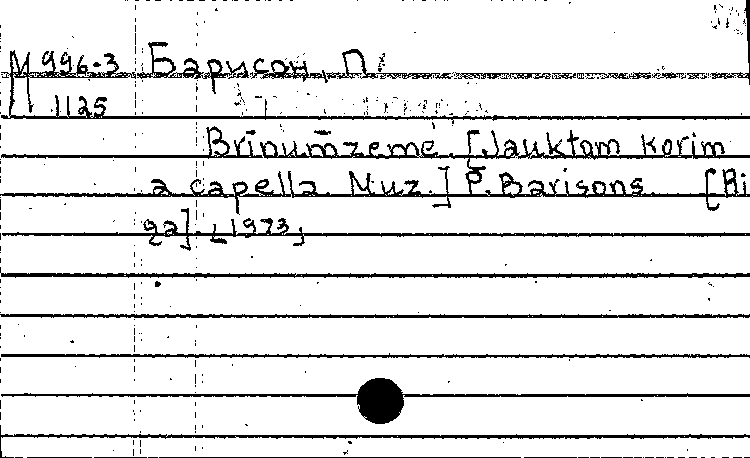 М 996-3 Барисон, П.
1125
Brīnumzeme. [Jauktam korim
a capella. Muz.] P. Barisons. [Ri
ga]. [1973]